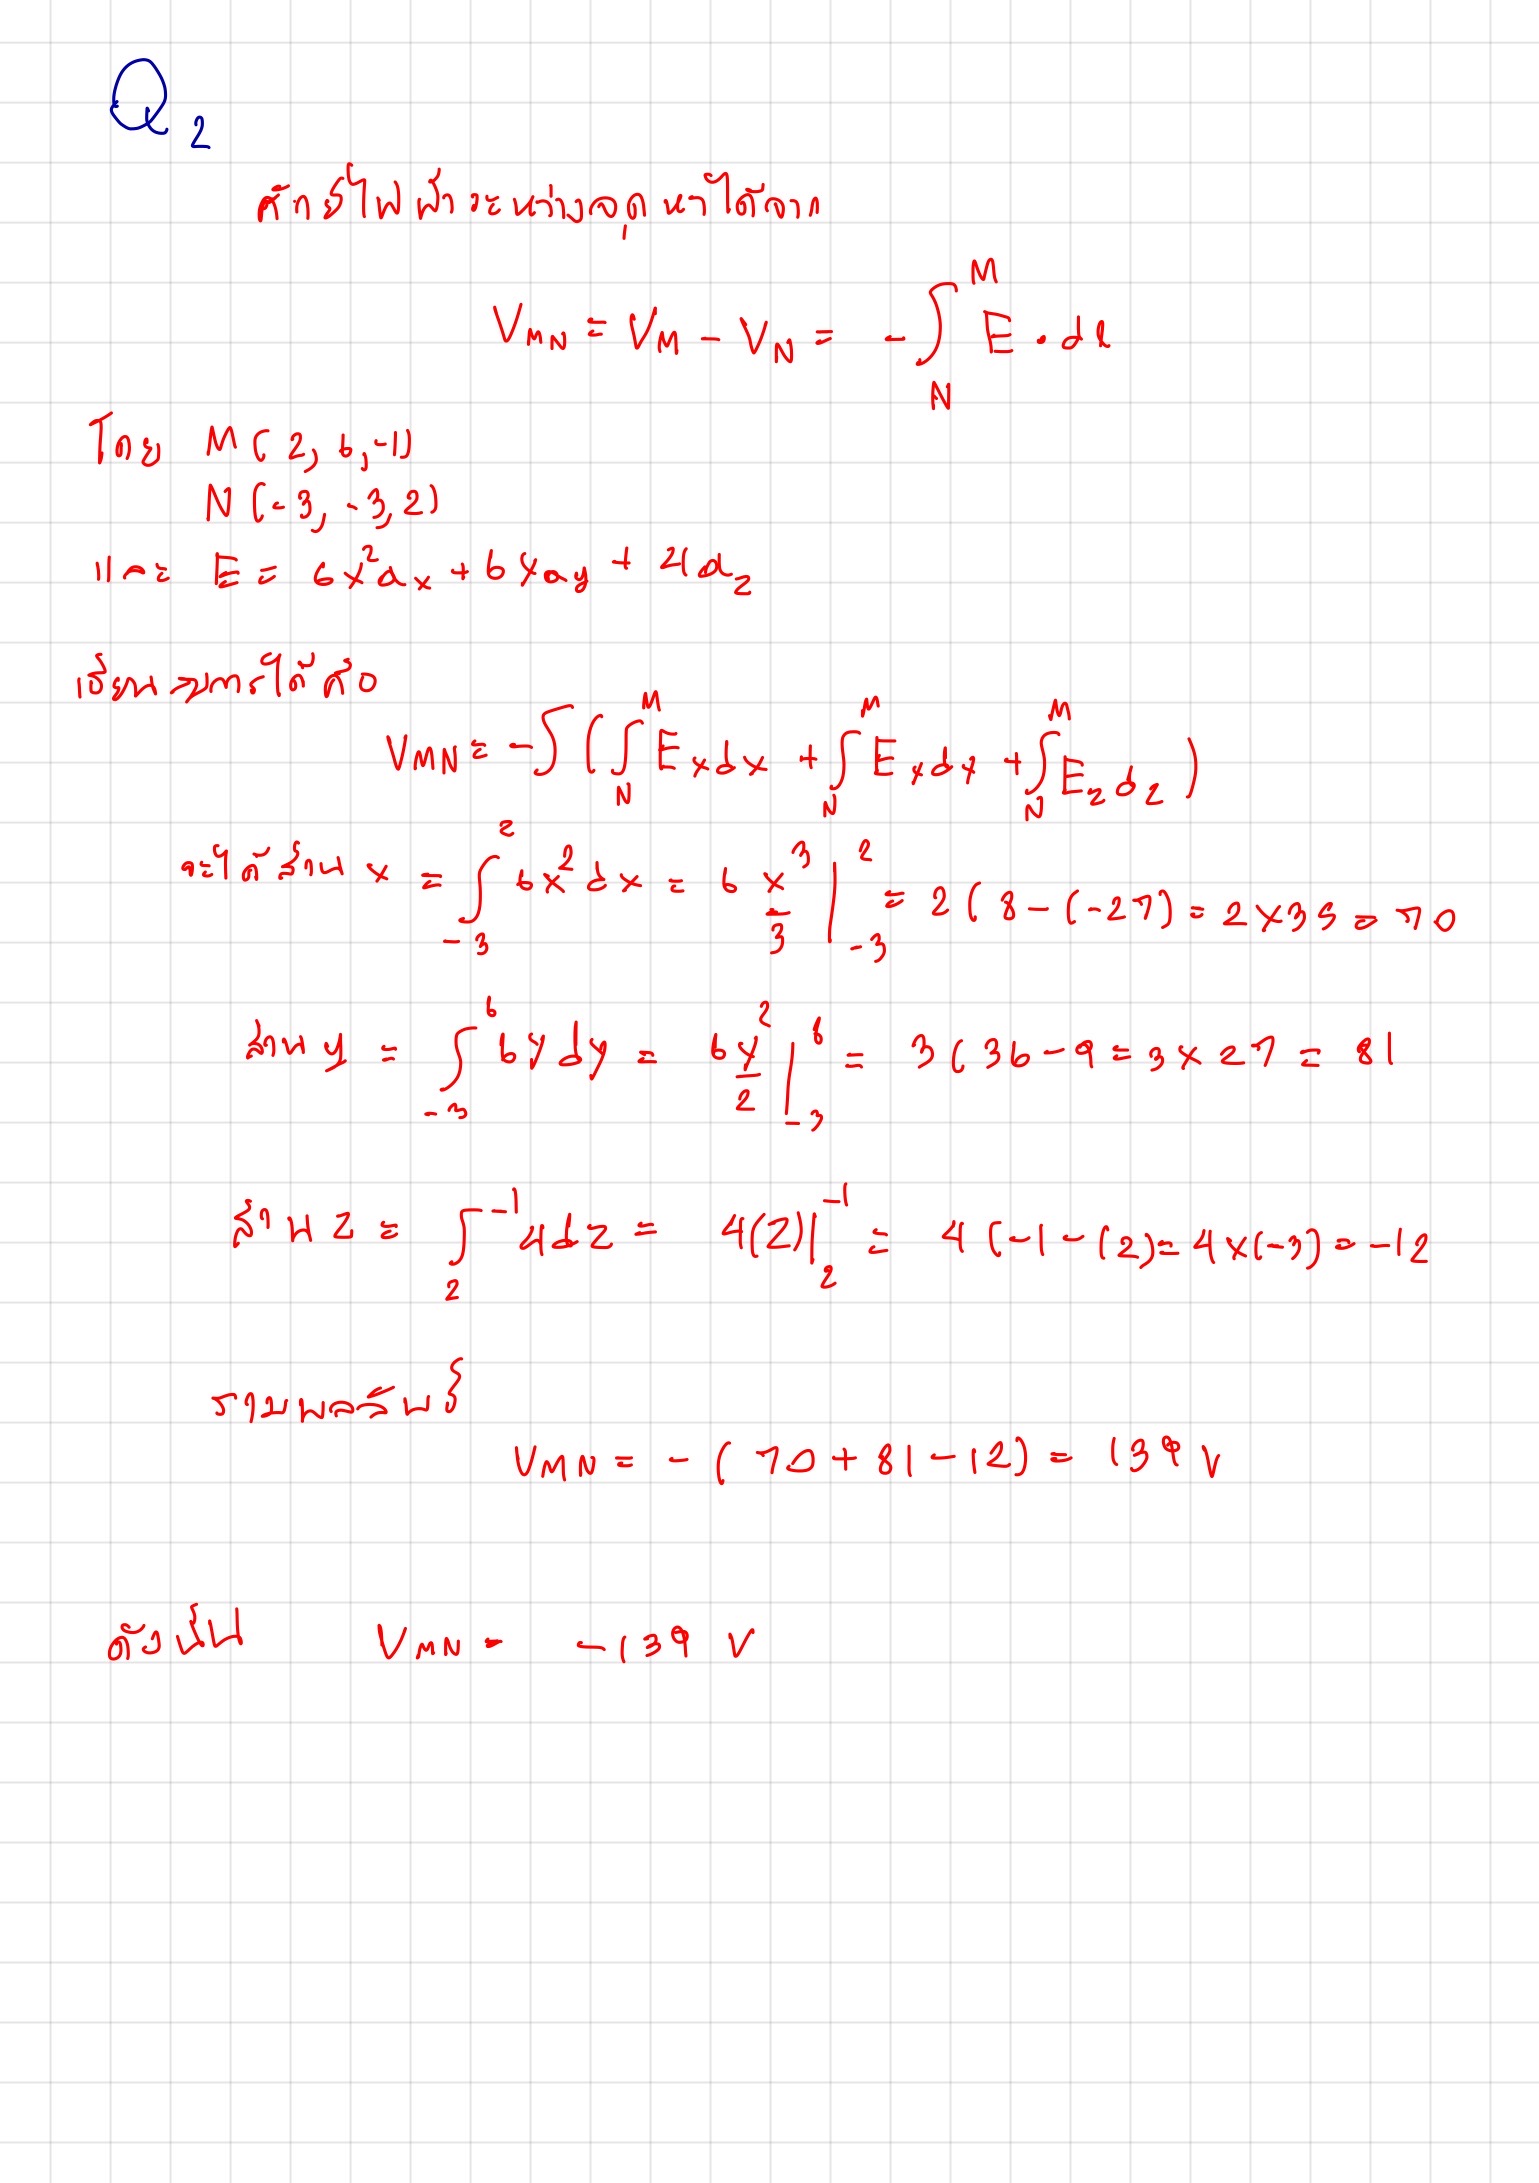 Q2
ศักย์ไฟฟ้าระหว่างจุด หาได้จาก
V_MN = V_M - V_N = -∫_N^M E · dl
โดย M(2, 6, -1)
N(-3, -3, 2)
และ E = 6x²a_x + 6ya_y + 4a_z
เขียนสมการได้คือ
V_MN = -∫(∫_N^M E_x dx + ∫_N^M E_y dy + ∫_N^M E_z dz)
จะได้ ส่วน x = ∫_-3^2 6x² dx = 6 x³/3 |_-3^2 = 2(8-(-27) = 2×35 = 70
ส่วน y = ∫_-3^6 6y dy = 6y²/2 |_-3^6 = 3(36-9 = 3×27 = 81
ส่วน z = ∫_2^-1 4dz = 4(z)|_2^-1 = 4(-1-(2) = 4×(-3) = -12
รวมผลลัพธ์
V_MN = -(70+81-12) = 139 V
ดังนั้น V_MN = -139 V